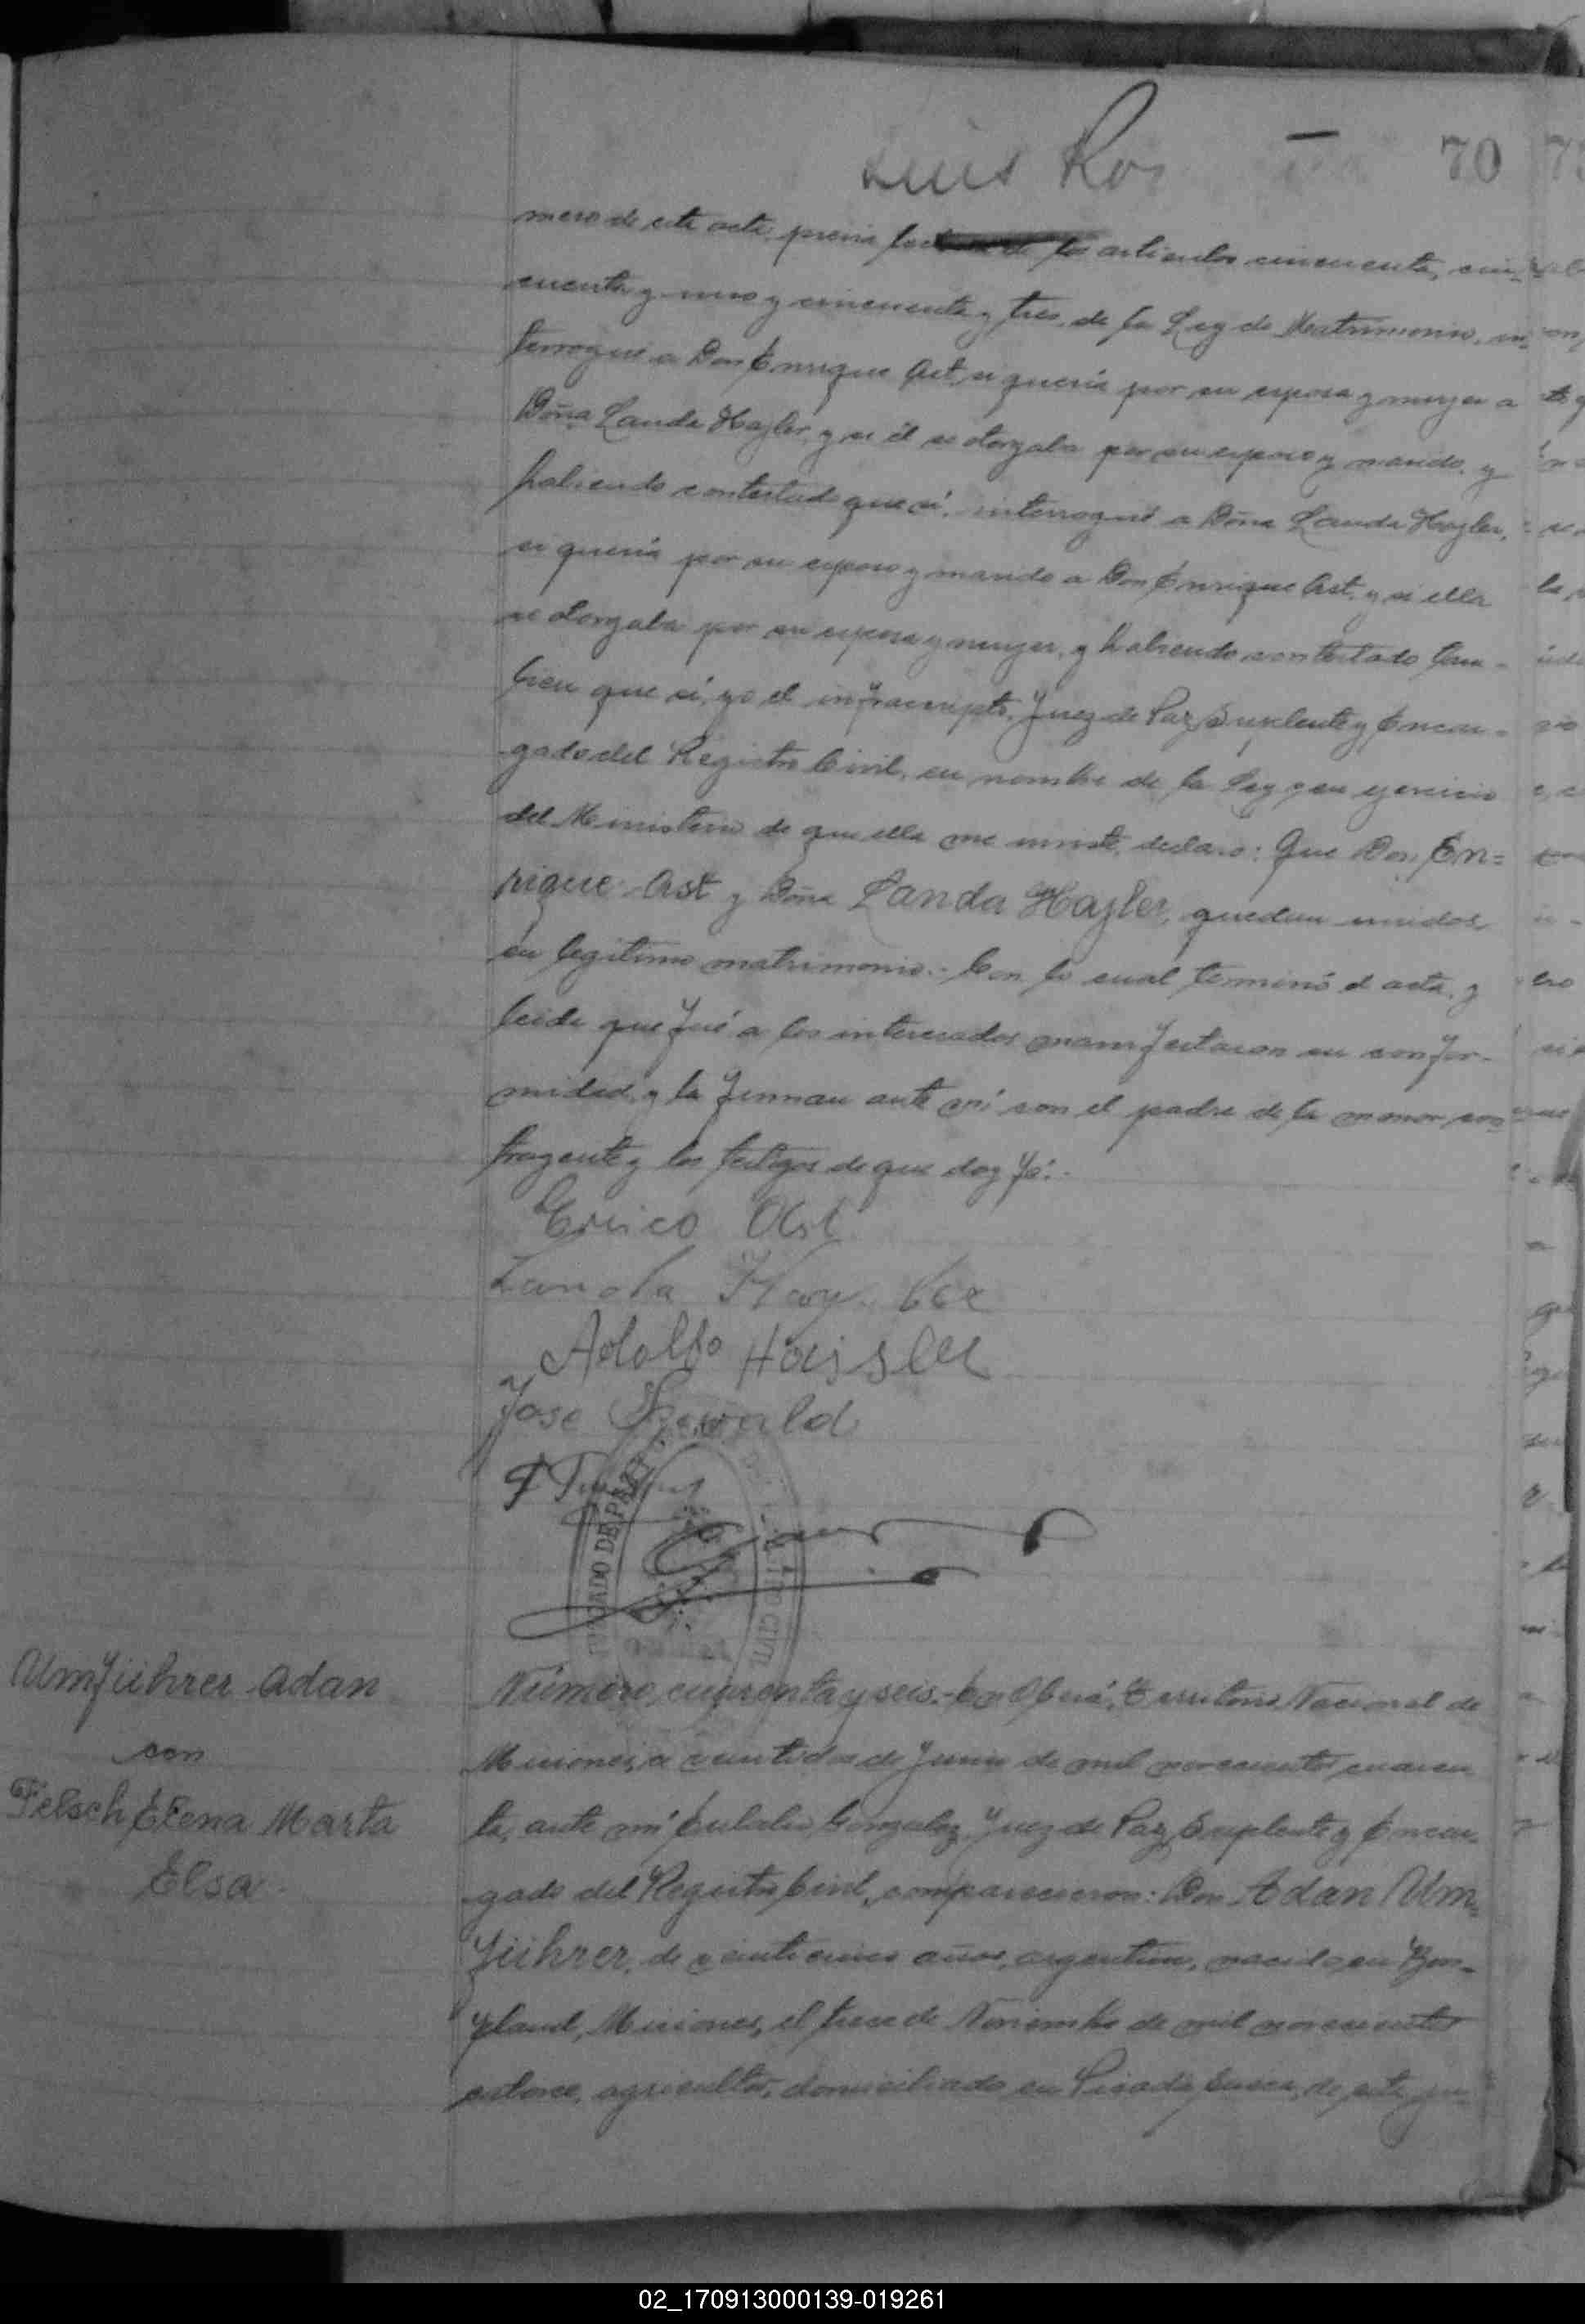 Luis Ros
70
mero de este acta, previa lectura de los articulos cincuenta, cin-
cuenta y uno y cincuenta y tres de la Ley de Matrimonio, in-
terrogué a Don Enrique Ast, si quería por su esposa y mujer a
Doña Landa Hajler, y si él se otorgaba por su esposo y marido, y
habiendo contestado que sí, interrogué a Doña Landa Hajler,
si quería por su esposo y marido a Don Enrique Ast, y si ella
se otorgaba por su esposa y mujer, y habiendo contestado tam-
bien que sí, yo el infrascripto, Juez de Paz Suplente y Encar-
gado del Registro Civil, en nombre de la Ley y en ejercicio
del Ministerio de que ella me inviste, declaro: Que Don En=
rique Ast y Doña Landa Hajler, quedan unidos
en legitimo matrimonio.- Con lo cual terminó el acta, y
leida que fué a los interesados manifestaron su confor-
midad, y la firman ante mí con el padre de la menor con-
trayente y los testigos de que doy fé.-
Erico Ast
Landa Hay
Adolfo Haissler
Jose
JUZGADO DE PAZ
CIVIL
Umführer Adan
con
Felsch Elena Marta
Elsa.
Número cuarenta y seis.- En Oberá, Territorio Nacional de
Misiones, a veintidos de Junio de mil novecientos cuaren
ta, ante mí Eulalio Gonzalez, Juez de Paz Suplente y Encar-
gado del Registro Civil, comparecieron: Don Adan Um=
führer, de veinticinco años, argentino, nacido en Bon-
pland, Misiones, el trece de Noviembre de mil novecientos
catorce, agricultor, domiciliado en Picada de este ju-
02_170913000139-019261